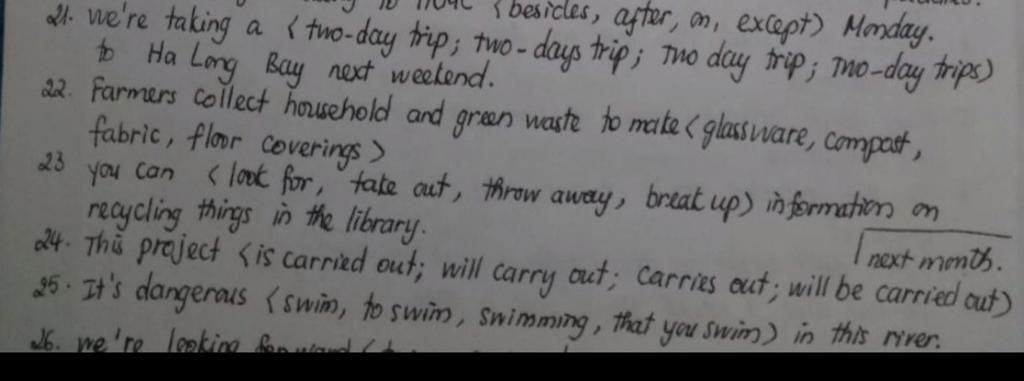 (besides, after, on, except) Monday.
21. We're taking a (two-day trip; two-days trip; Two day trip; Two-day trips)
to Ha Long Bay next weekend.
22. Farmers collect household and green waste to make (glassware, compost,
fabric, floor coverings)
23 you can (look for, take out, throw away, break up) information on
recycling things in the library.
24. This project (is carried out; will carry out; Carries out; will be carried out)
next month.
25. It's dangerous (swim, to swim, swimming, that you swim) in this river.
26. We're looking forward